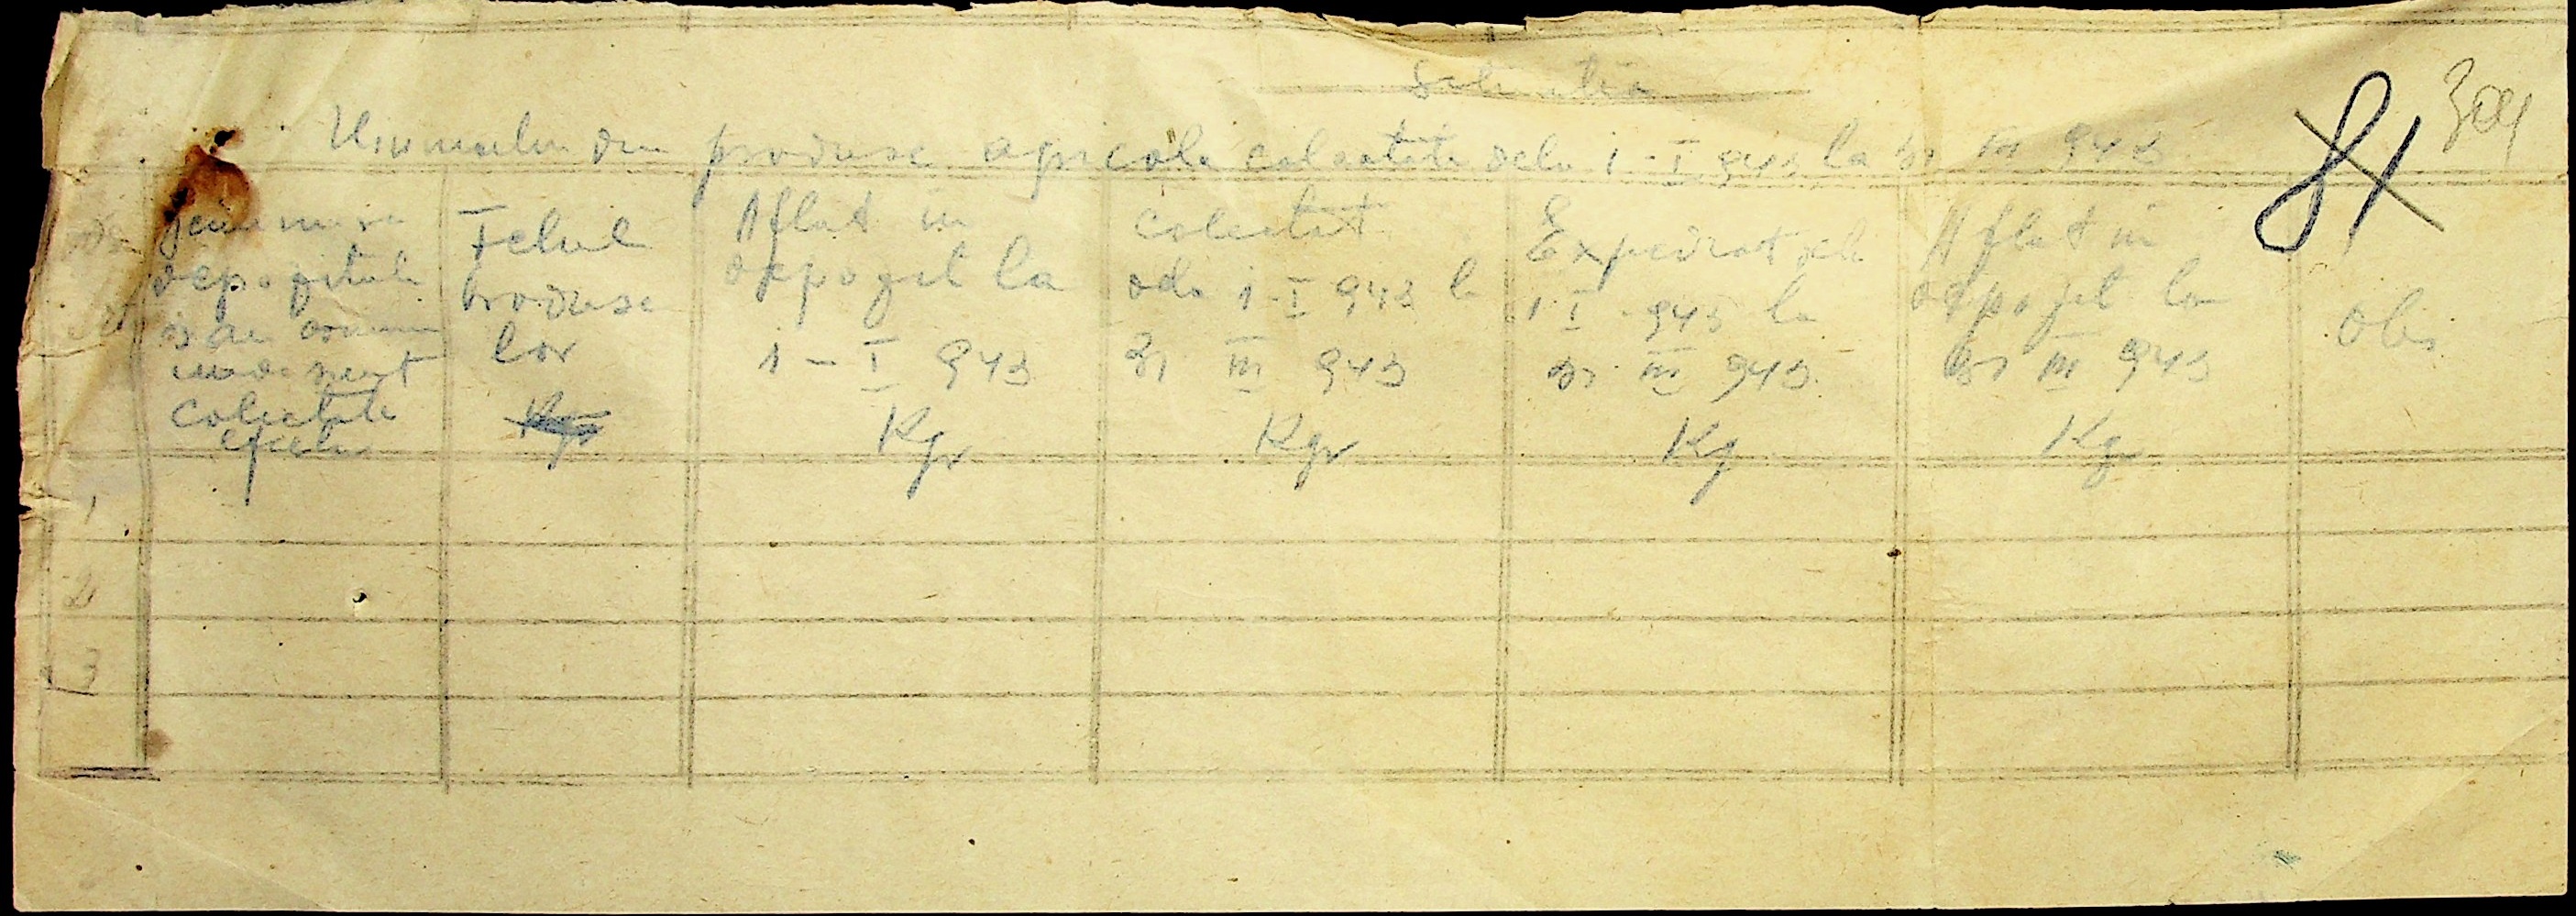 Situatia
produse agricole colectate dela 1-I 943 la 31 III 943
81
304
depozitul
sau comuna
unde sunt
colectate
Felul
produse
lor
Aflat in
depozit la
1 - I 943
Kgr
Colectat
dela 1-I 943 la
31 III 943
Kgr
Expediat dela
1 I 943 la
31 III 943
Kg
Aflat in
depozit la
31 III 943
Kg
Obs
1
2
3